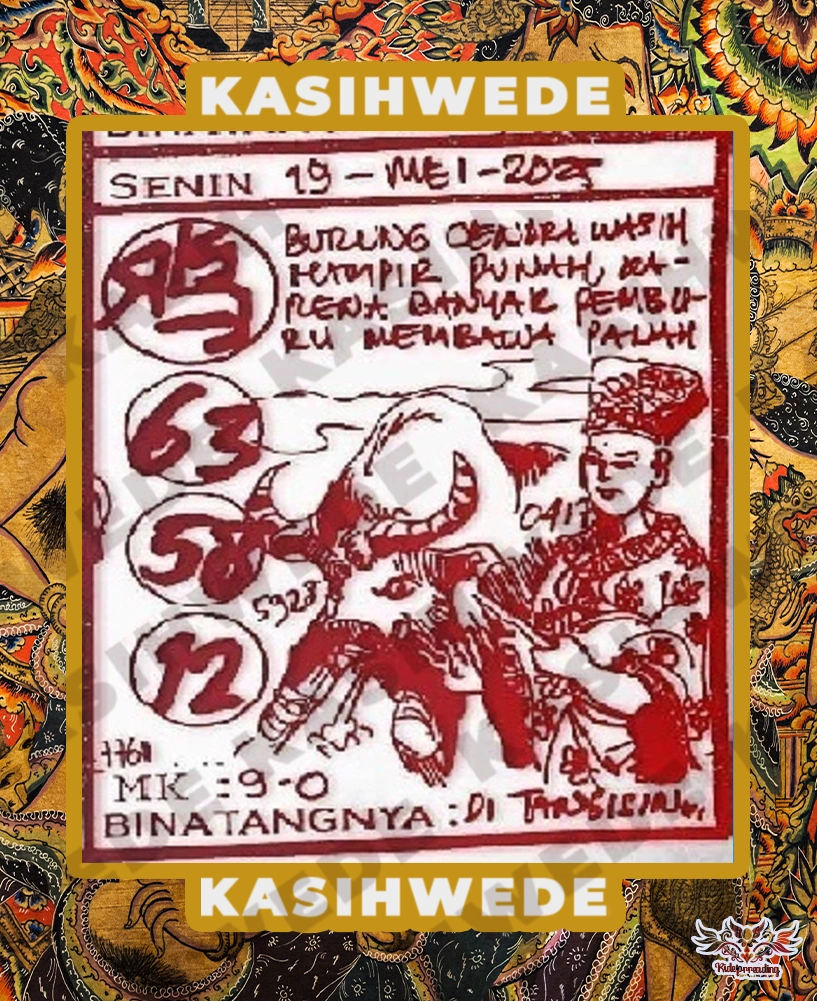 KASIHWEDE
SENIN 19 - MEI - 2025
BURUNG CENDRA WASIH
HAMPIR PUNAH, KA-
RENA BANYAK PEMBU-
RU MEMBAWA PANAH
63
58
12
5928
0417
MK : 9-0
BINATANGNYA : DI
KASIHWEDE